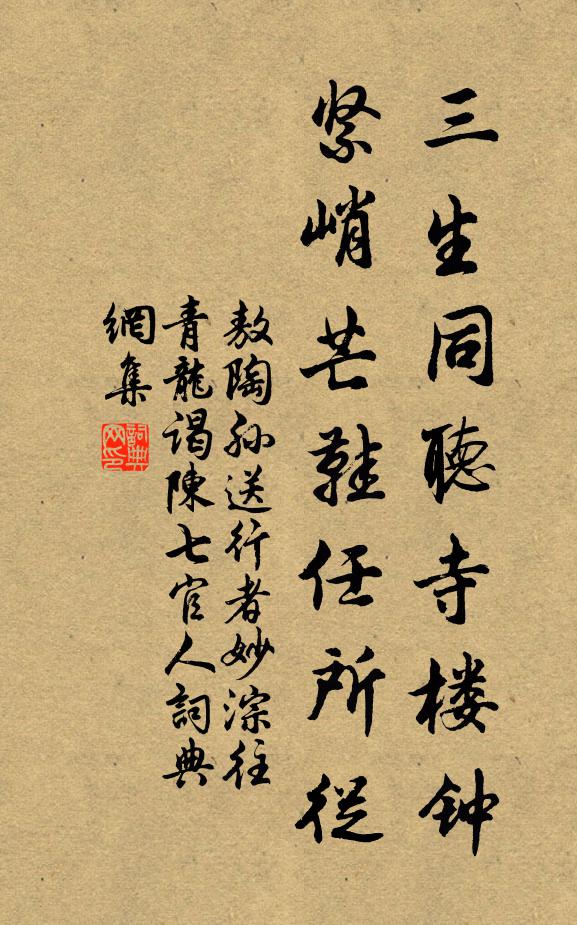 三生同聽寺楼钟
紧峭芒鞋任所從
敖陶孙送行者妙淙往
青龍谒陳七官人詞典
網集
詞典網印